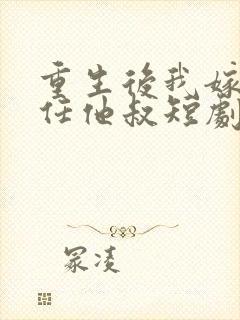 重生後我嫁
任他叔短劇
冢凌